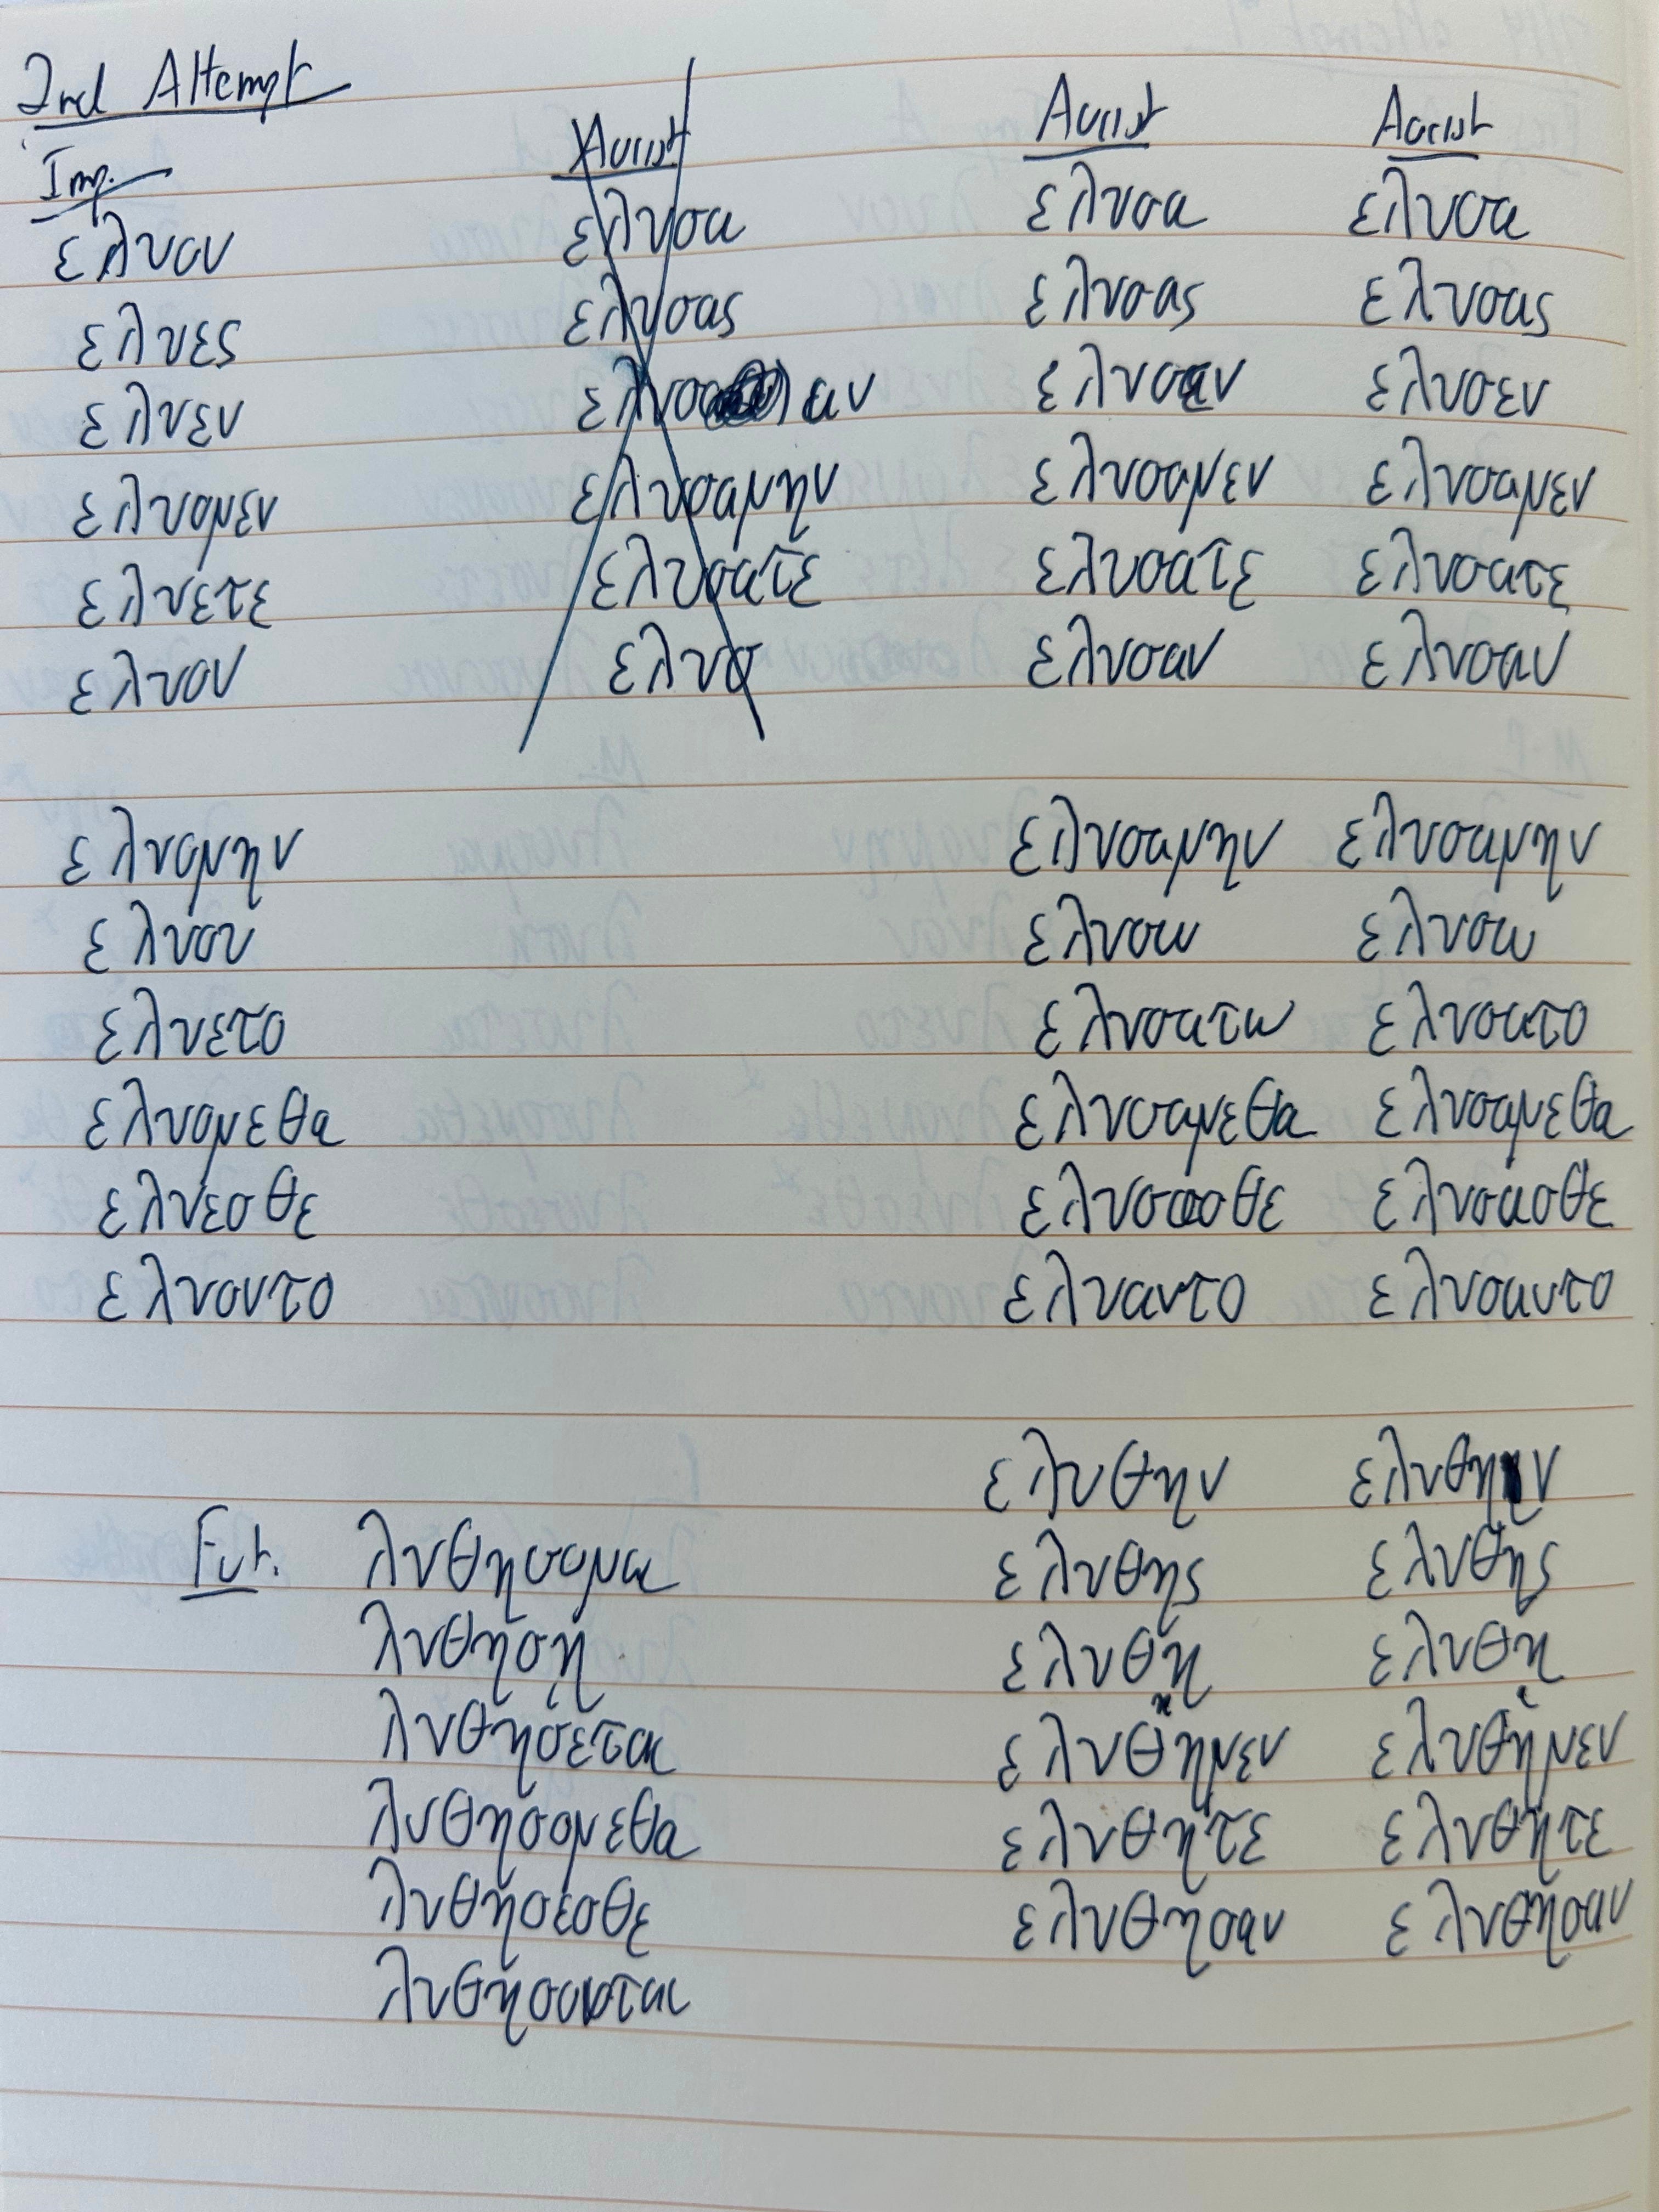 2nd Attempt
Imp. Aorist Aorist Aorist
ελυον ελυσα ελυσα ελυσα
ελυες ελυσας ελυσας ελυσας
ελυεν αν ελυσεν
ελυομεν ελυσαμην ελυσαμεν ελυσαμεν
ελυετε ελυσατε ελυσατε ελυσατε
ελυον ελυσ ελυσαν ελυσαν
ελυομην ελυσαμην ελυσαμην
ελυου ελυσω ελυσω
ελυετο ελυσατω ελυσατο
ελυομεθα ελυσαμεθα ελυσαμεθα
ελυεσθε ελυσασθε ελυσασθε
ελυοντο ελυαντο ελυσαντο
ελυθην ελυθην
Fut. λυθησομαι ελυθης ελυθης
λυθησῃ ελυθη ελυθη
λυθησεται ελυθημεν ελυθημεν
λυθησομεθα ελυθητε ελυθητε
λυθησεσθε ελυθησαν ελυθησαν
λυθησονται